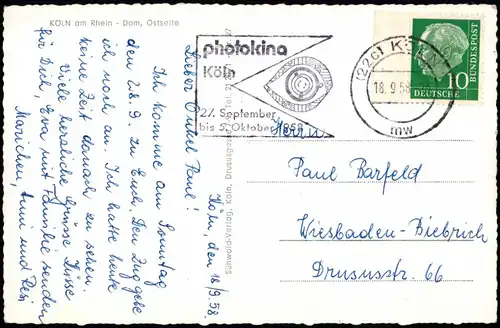 KÖLN am Rhein - Dom, Ostseite
Köln, den 18/9.58.
Lieber Onkel Paul!
Ich komme am Sonntag
den 28.9. zu Euch. Den Zug gebe
ich noch an. Ich hatte heute
keine Zeit danach zu sehen.
Viele herzliche Grüsse Küsse
für Dich, Eva, mit Familie senden
und Resi
photokina
Köln
27. September
bis 5. Oktober 1958
(22c) KÖLN
18.9.58
mw
10
DEUTSCHE
BUNDESPOST
Herrn
Paul Barfeld
Wiesbaden-Biebrich
Drususstr. 66